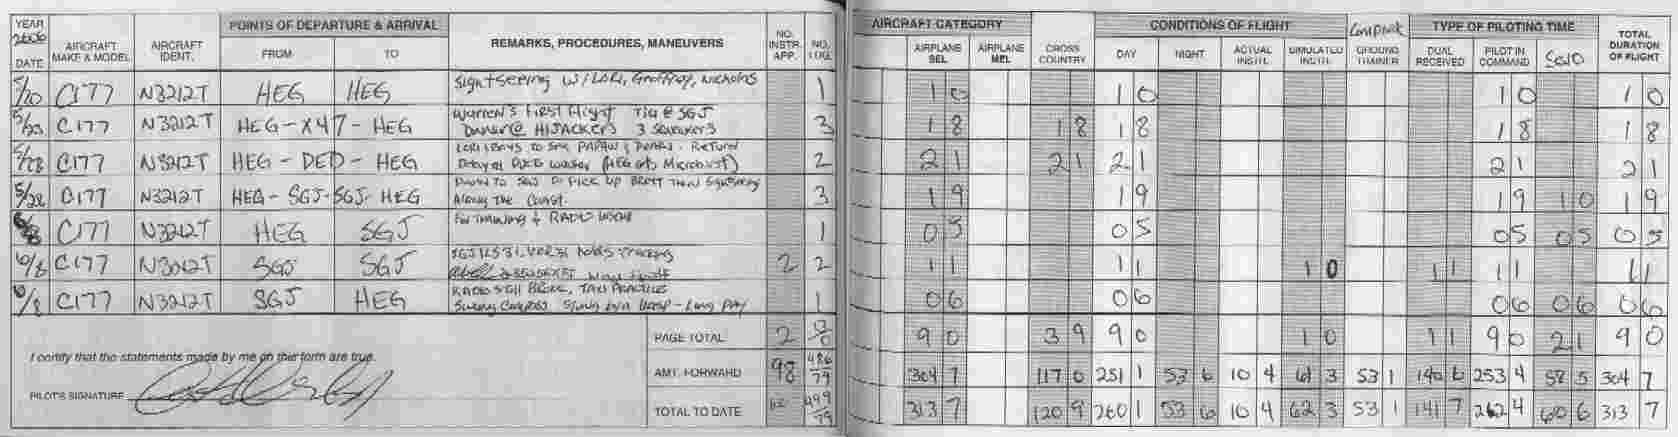 YEAR 2006 DATE AIRCRAFT MAKE & MODEL AIRCRAFT IDENT. POINTS OF DEPARTURE & ARRIVAL FROM TO REMARKS, PROCEDURES, MANEUVERS NO. INSTR. APP. NO. LDG. AIRCRAFT CATEGORY AIRPLANE SEL AIRPLANE MEL CROSS COUNTRY CONDITIONS OF FLIGHT DAY NIGHT ACTUAL INSTR. SIMULATED INSTR. GROUND TRAINER TYPE OF PILOTING TIME DUAL RECEIVED PILOT IN COMMAND SOLO TOTAL DURATION OF FLIGHT
5/20 C177 N3212T HEG HEG Sightseeing w/ Lori, Geoffrey, Nicholas 1 1 0 1 0 1 0 1 0
C177 N3212T HEG-X47-HEG Warren's First Flight @ SGJ
Dinner @ HIJACKERS 3 3 1 8 1 8 1 8 1 8 1 8
5/28 C177 N3212T HEG - DED - HEG Return
(HEG gets Microburst) 2 2 1 2 1 2 1 2 1 2 1
5/28 C177 N3212T HEG-SGJ-SGJ-HEG Down to SGJ to pick up Brett then sightseeing
Along the Coast. 3 1 9 1 9 1 9 1 0 1 9
C177 N3212T HEG SGJ For Training & Radio 1 0 5 0 5 0 5 0 5 0 5
6/8 C177 N3212T SGJ SGJ 2 2 1 1 1 1 1 0 1 1 1 1 1 1
6/8 C177 N3212T SGJ HEG Radio still Broke, Taxi Practice
Swung Compass Stung by a Wasp - Long Day 1 0 6 0 6 0 6 0 6 0 6
PAGE TOTAL 2 13/0 9 0 3 9 9 0 1 0 1 1 9 0 2 1 9 0
I certify that the statements made by me on this form are true.
AMT. FORWARD 98 486/79 304 7 117 0 251 1 53 6 10 4 61 3 53 1 140 6 253 4 58 5 304 7
PILOT'S SIGNATURE
TOTAL TO DATE 499/79 313 7 120 9 260 1 53 6 10 4 62 3 53 1 141 7 262 4 60 6 313 7